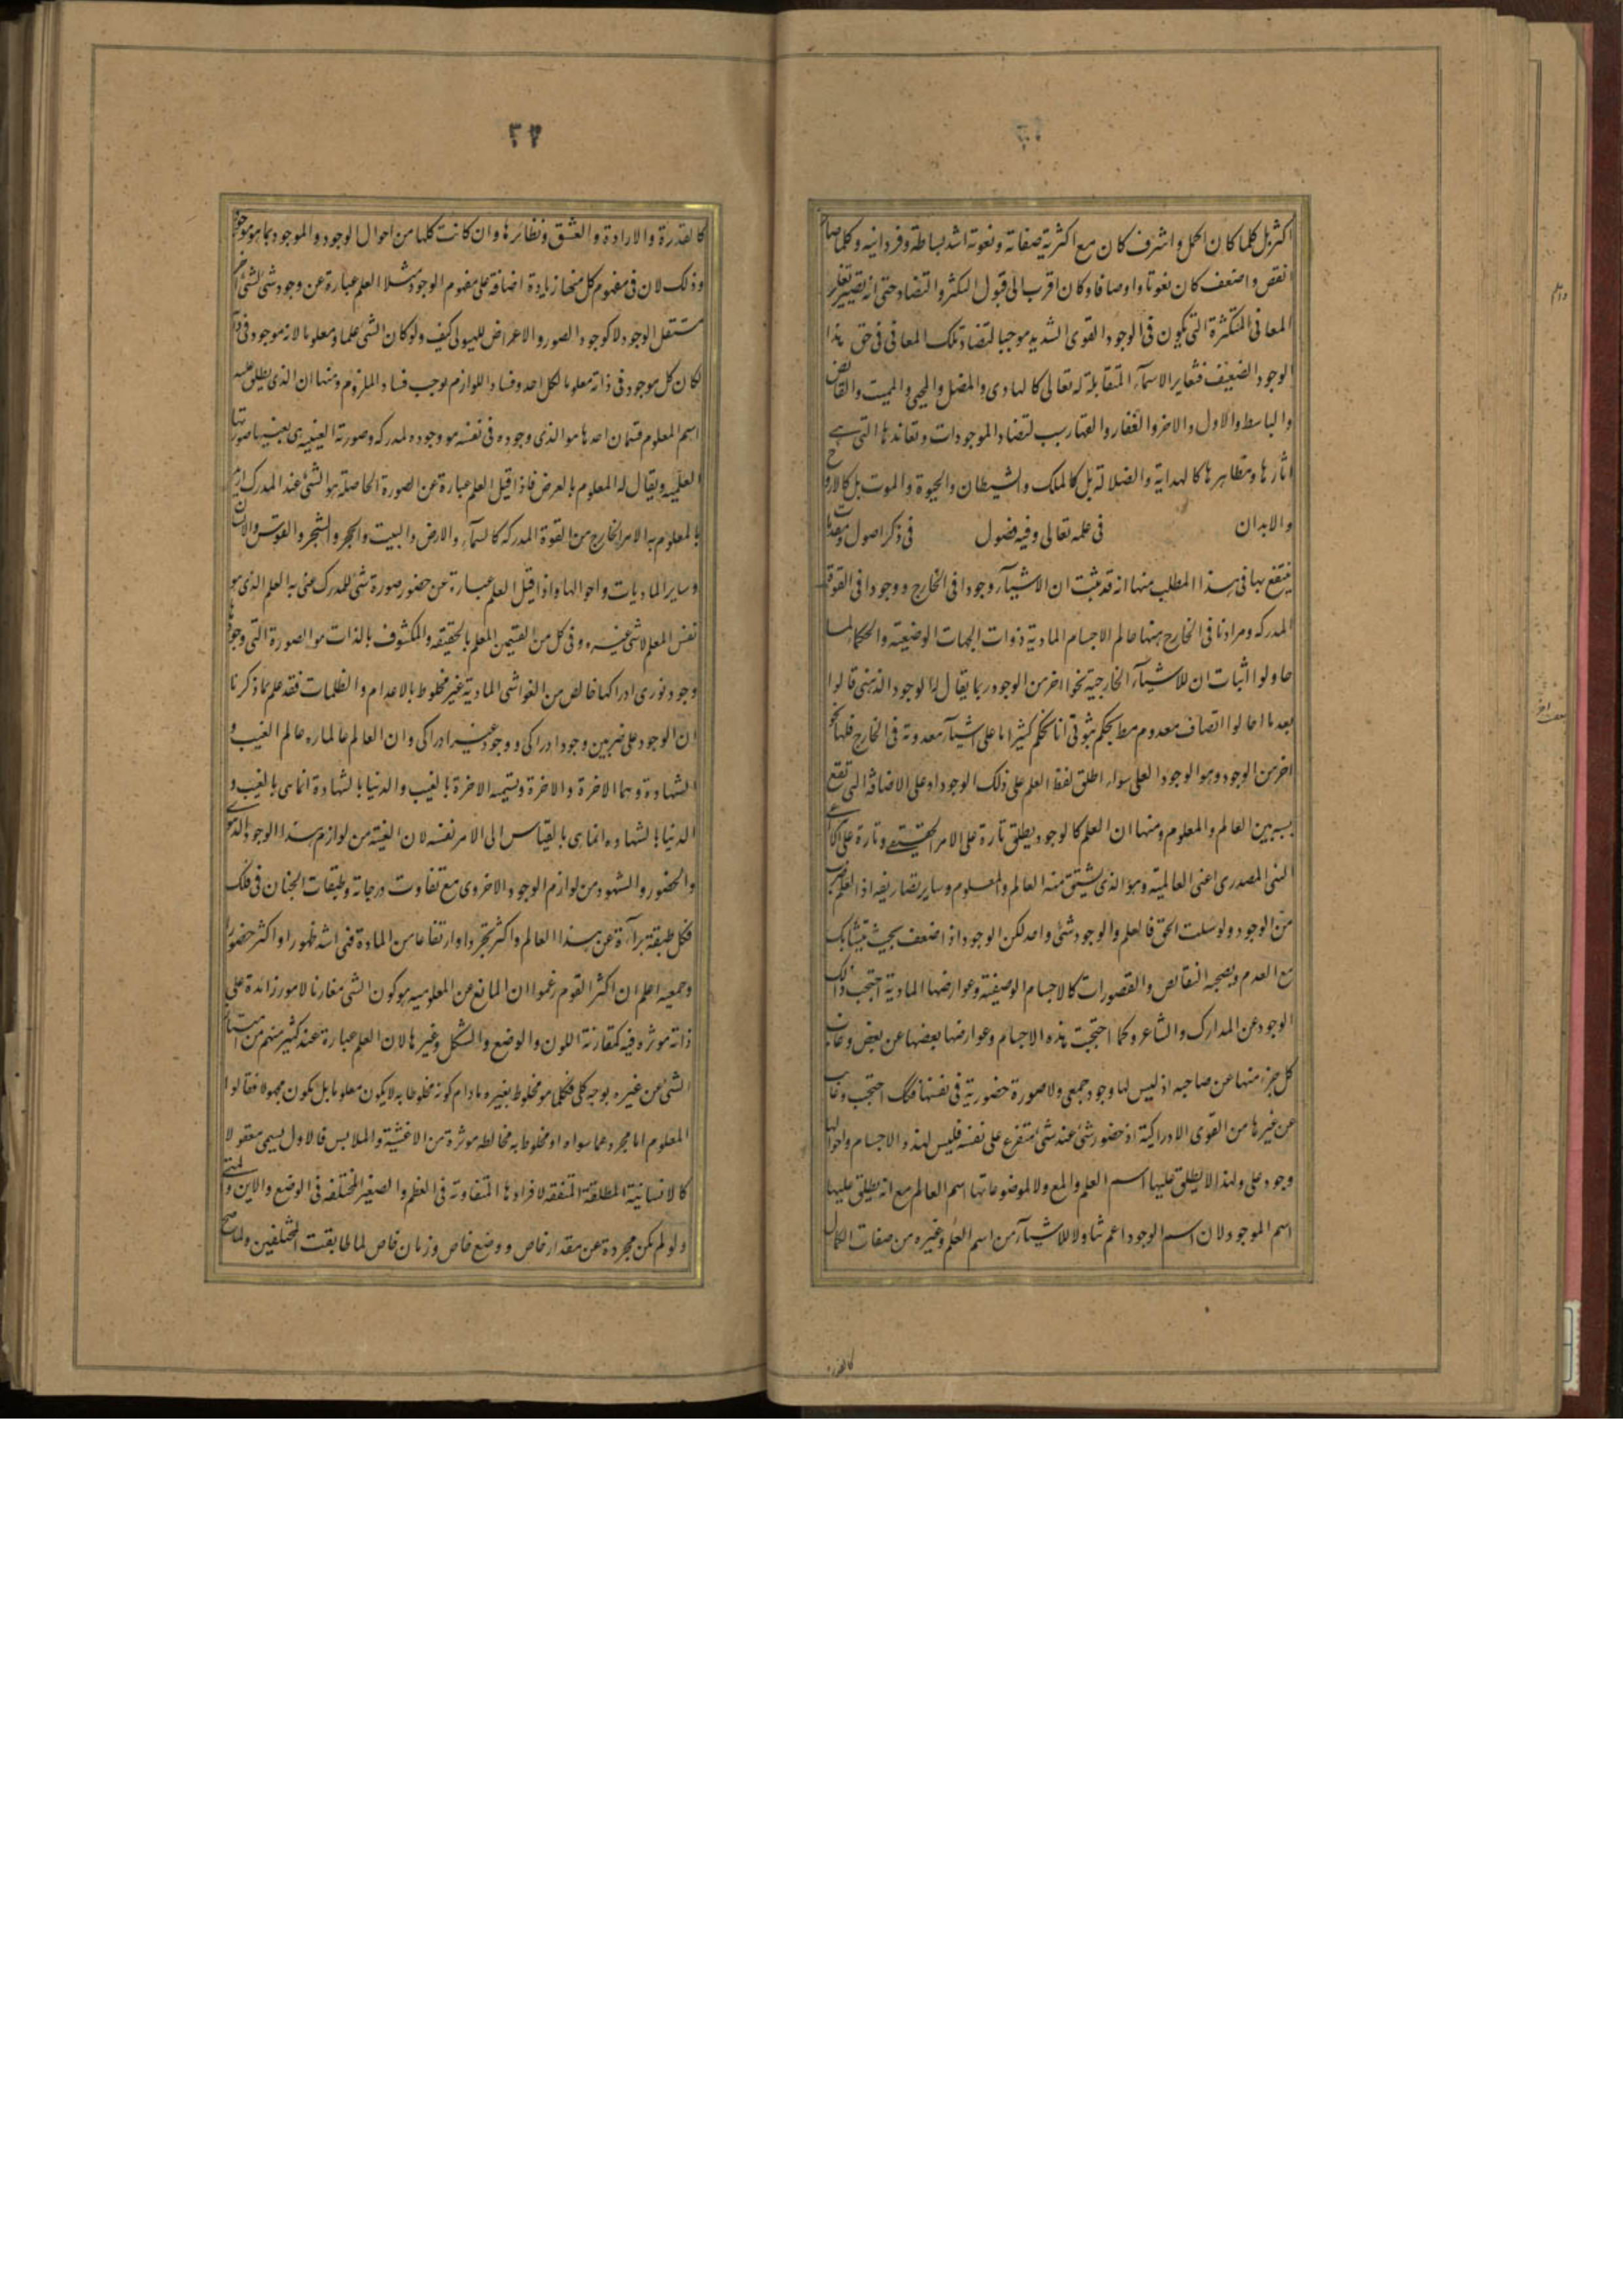 اكثر بل كلما كان اكمل واشرف كان مع اكثرية صفاته ونعوته اشد بساطة وفردانيه وكلما صار
انقص واضعف كان نعوتا واوصافا وكان اقرب الى قبول التكثر والتضاد حتى انه تصير تغاير
المعانى المتكثرة التى يكون فى الوجود القوى الشديد موجبا لتضاد تلك المعانى فى حق هذا
الوجود الضعيف فتغاير الاسمآء المتقابلة له تعالى كالهادى والمضل والمحيى والمميت والقابض
والباسط والاول والاخر والغفار والقهار سبب لتضاد الموجودات وتعاندها التى هے
اثارها ومظاهرها كالهداية والضلالة بل كالملك والشيطان والحيوة والموت بل كالارواح
والابدان فى علمه تعالى وفيه فصول فى ذكر اصول ومقدمات
ينتفع بها فى هذا المطلب منها انه قد ثبت ان للاشيآء وجودا فى الخارج ووجودا فى القوة
المدركه ومرادنا فى الخارج ههنا عالم الاجسام المادية ذوات الجهات الوضعيه والحكمآء لما
حاولوا اثبات ان للاشيآء الخارجية نحوا اخر من الوجود ربما يقال له الوجود الذهنى قالوا
بعد ما احالوا اتصاف معدوم مط بحكم ثبوتى انا نحكم كثيرا ما على اشيآء معدومة فى الخارج فلها نحو
اخر من الوجود وهو الوجود العلمى سواء اطلق لفظ العلم على ذلك الوجود او على الاضافة التى تقع
بسببه بين العالم والمعلوم ومنها ان العلم كالوجود يطلق تارة على الامر الحقيقے وتارة على المعنے
النبى المصدرى اعنى العالمية وهو الذى يشتق منه العالم والمعلوم وساير تصاريفه اذ العلم ضرب
من الوجود ولو سئلت الحق فالعلم والوجود شئ واحد لكن الوجود اذا ضعف بحيث يتشابك
مع العدم ويصحبه النقائص والقصورات كالاجسام الوضعية وعوارضها المادية احتجب ذلك
الوجود عن المدارك والمشاعر وكما احتجبت هذه الاجسام وعوارضها بعضها عن بعض وغاب
كل جزء منها عن صاحبه اذ ليس لها وجود جمعى ولا صورة حضورية فى نفسها فكك احتجب وغاب
عن غيرها من القوى الادراكية اذ حضور شئ عند شئ متفرع على نفسه فليس لهذه الاجسام واحوالها
وجود علمى ولهذا لا يطلق عليها اسم العلم والمع ولا لموضوعاتها اسم العالم مع انه يطلق عليها
اسم الموجود لان اسم الوجود اعم تناولا للاشيآء من اسم العلم وغيره من صفات الكمال
كالقدرة
٣٢
كالقدرة والارادة والعشق ونظائرها وان كانت كلها من احوال الوجود والموجود بما هو موجود
وذلك لان فى مفهوم كل منها زيادة اضافة على مفهوم الوجود مثلا العلم عبارة عن وجود شئ لشئ اخر
مستقل الوجود لا كوجود الصور والاعراض للهيولى كيف ولو كان الشئ علما ومعلوما لانه موجود فى ذاته
لكان كل موجود فى ذاته معلوما لكل احد وفساد اللوازم يوجب فساد الملزوم ومنها ان الذى يطلق عليه
اسم المعلوم قسمان احدهما هو الذى وجوده فى نفسه هو وجوده لمدركه وصورته العينيه هى بعينها صورتها
العلميه ويقال له المعلوم بالعرض فاذا قيل العلم عبارة عن الصورة الحاصلة من الشئ عند المدرك اريد
بالمعلوم به الامر الخارج من القوة المدركه كالسمآء والارض والبيت والحجر والشجر والفرس والانسان
وساير الماديات واحوالها واذا قيل العلم عبارة عن حضور صورة شئ للمدرك عنى به العلم الذى هو
نفس المعلم لا شئ غيره وفى كل من القسمين المعلم بالحقيقه والمكشوف بالذات هو الصورة التى وجودها
وجود نورى ادراكها خالص من الغواشى المادية غير مخلوط بالاعدام والظلمات فقد علم مما ذكرنا
ان الوجود على ضربين وجود ادراكى ووجود غير ادراكى وان العالم عالمان عالم الغيب و
الشهادة وهما الاخرة والاخرة وتسميه الاخرة بالغيب والدنيا بالشهادة انما هى بالغيب و
الدنيا بالشهاده انما هى بالقياس الى الامر نفسه لان الغيبة من لوازم هذا الوجود الدنيوى
والحضور والشهود من لوازم الوجود الاخروى مع تفاوت درجاته وطبقات الجنان فى ذلك
فكل طبقة برآءة عن هذا العالم واكثر تجردا وارتفاعا من المادة فهى اشد ظهورا واكثر حضورا
وجمعيه اعلم ان اكثر القوم زعموا ان المانع عن المعلوميه هو كون الشئ مقارنا لامور زائدة على
ذاته موثره فيه كمقارنة اللون والوضع والشكل وغيرها لان العلم عبارة عند كثير منهم من امتياز
الشئ عن غيره بوجه كلى فكلما هو مخلوط بغيره ما دام كونه مخلوطا به لا يكون معلوما بل يكون مجهولا فقالوا
المعلوم اما مجرد عما سواه او مخلوط به مخالطه موثرة من الاغشية والملابس فالاول يسمى معقولا
كالانسانية المطلقة المتفقه لافرادها المتفاوتة فى العظم والصغير المختلفه فى الوضع والاين والمتے
ولو لم تكن مجردة عن مقدار خاص ووضع خاص وزمان خاص لما طابقت المختلفين ولما صح